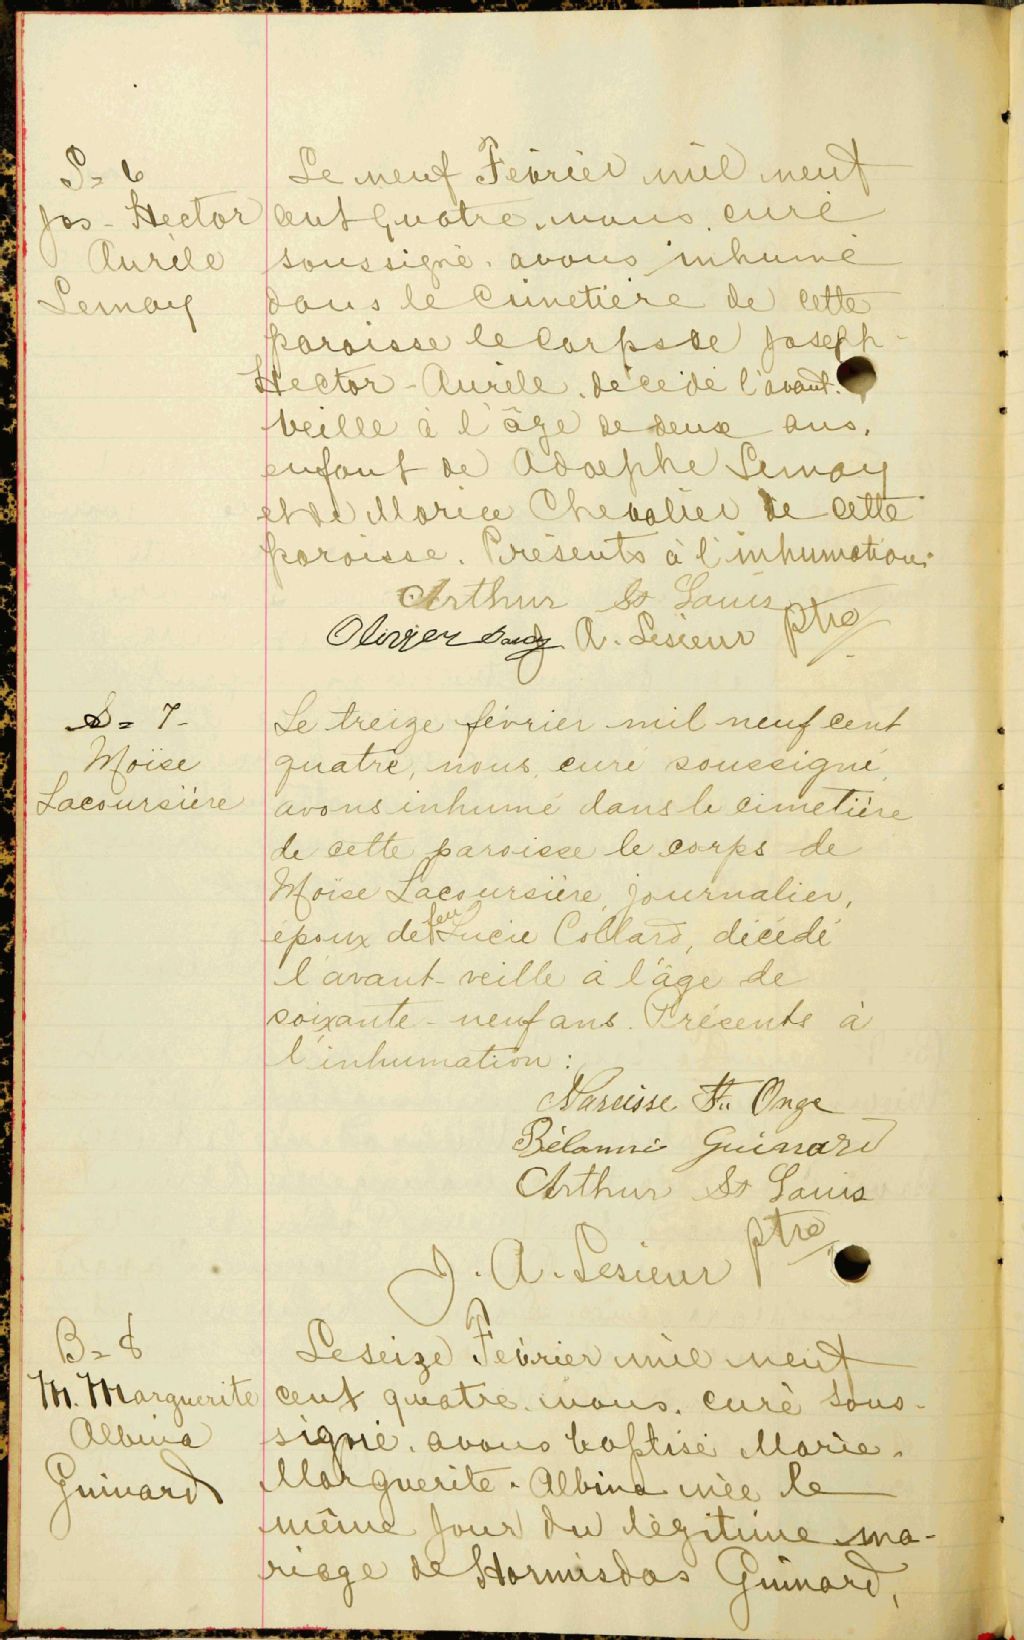 S = 6
Jos - Hector
Aurèle
Lemay
Le neuf Février mil neuf
cent quatre, nous, curé
soussigné, avons inhumé
dans le cimetière de cette
paroisse le corps de Joseph-
Hector - Aurèle, décédé l'avant-
veille à l'âge de deux ans,
enfant de Adolphe Lemay
et de Marie Chevalier de cette
paroisse. Présents à l'inhumation:
Arthur St Louis
Olivier J. A. Lesieur ptre
S = 7 -
Moïse
Lacoursière
Le treize février mil neuf cent
quatre, nous, curé soussigné,
avons inhumé dans le cimetière
de cette paroisse le corps de
Moïse Lacoursière, journalier,
époux de feu Lucie Collard, décédé
l'avant-veille à l'âge de
soixante-neuf ans. Présents à
l'inhumation :
Narcisse St. Onge
Bélonni Guinard
Arthur St Louis
J. A. Lesieur ptre
B = 8
M. Marguerite
Albina
Guinard
Le seize Février mil neuf
cent quatre, nous, curé sous-
signé, avons baptisé Marie-
Marguerite - Albina née le
même jour du légitime ma-
riage de Hormisdas Guinard,